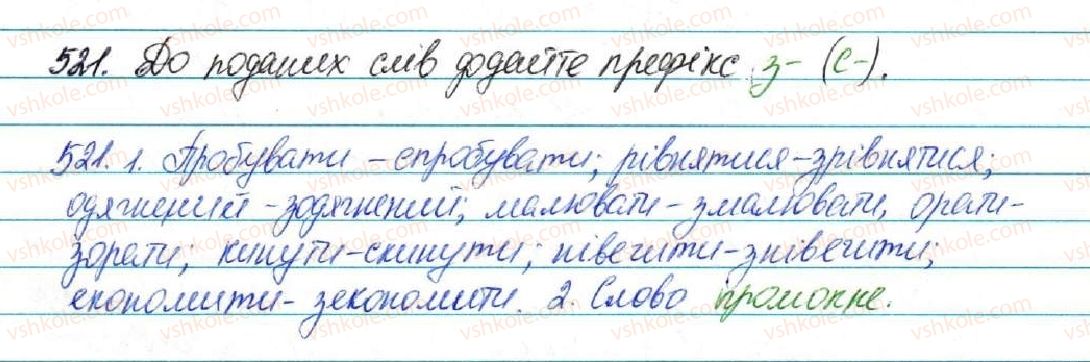 521. До поданих слів додайте префікс з- (с-).
521. 1. Пробувати - спробувати; рівнятися - зрівнятися;
одягнений - зодягнений; малювати - змалювати, орати -
зорати; кинути - скинути; нівечити - знівечити;
економити - зекономити. 2. Слово промокне.